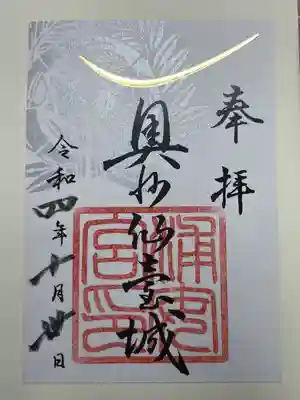 奉拝
奥州仙臺城
令和四年十月卅日